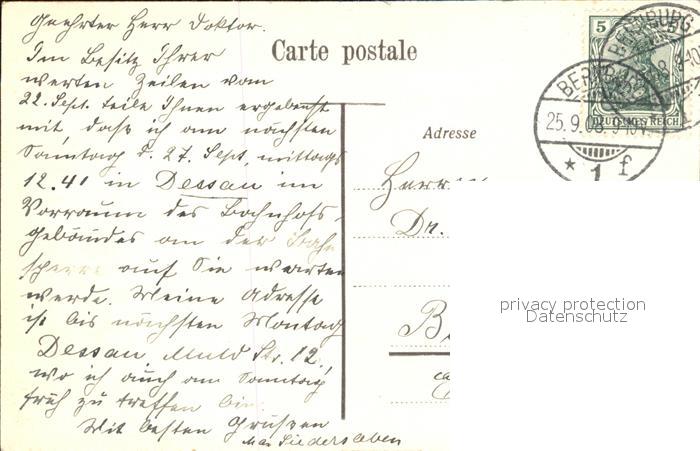 Geehrter Herr Doktor.
Im Besitz Ihrer
werten Zeilen vom
22. Sept. teile Ihnen ergebenst
mit, dass ich am nächsten
Sonntag d. 27. Sept. mittags
12.41 in Dessau im
Vorraum des Bahnhofs-
gebäudes an der Bahn
sperre auf Sie warten
werde. Meine Adresse
ist bis nächsten Montag
Dessau, Muld Str. 12,
wo ich auch am Sonntag
früh zu treffen bin.
Mit besten Grüßen
Max Liedersleben
Carte postale
Adresse
Herrn
Dr.
5
DEUTSCHES REICH
BERNBURG
25.9.08. 9-10V.
* 1 f
BERNBURG
privacy protection
Datenschutz